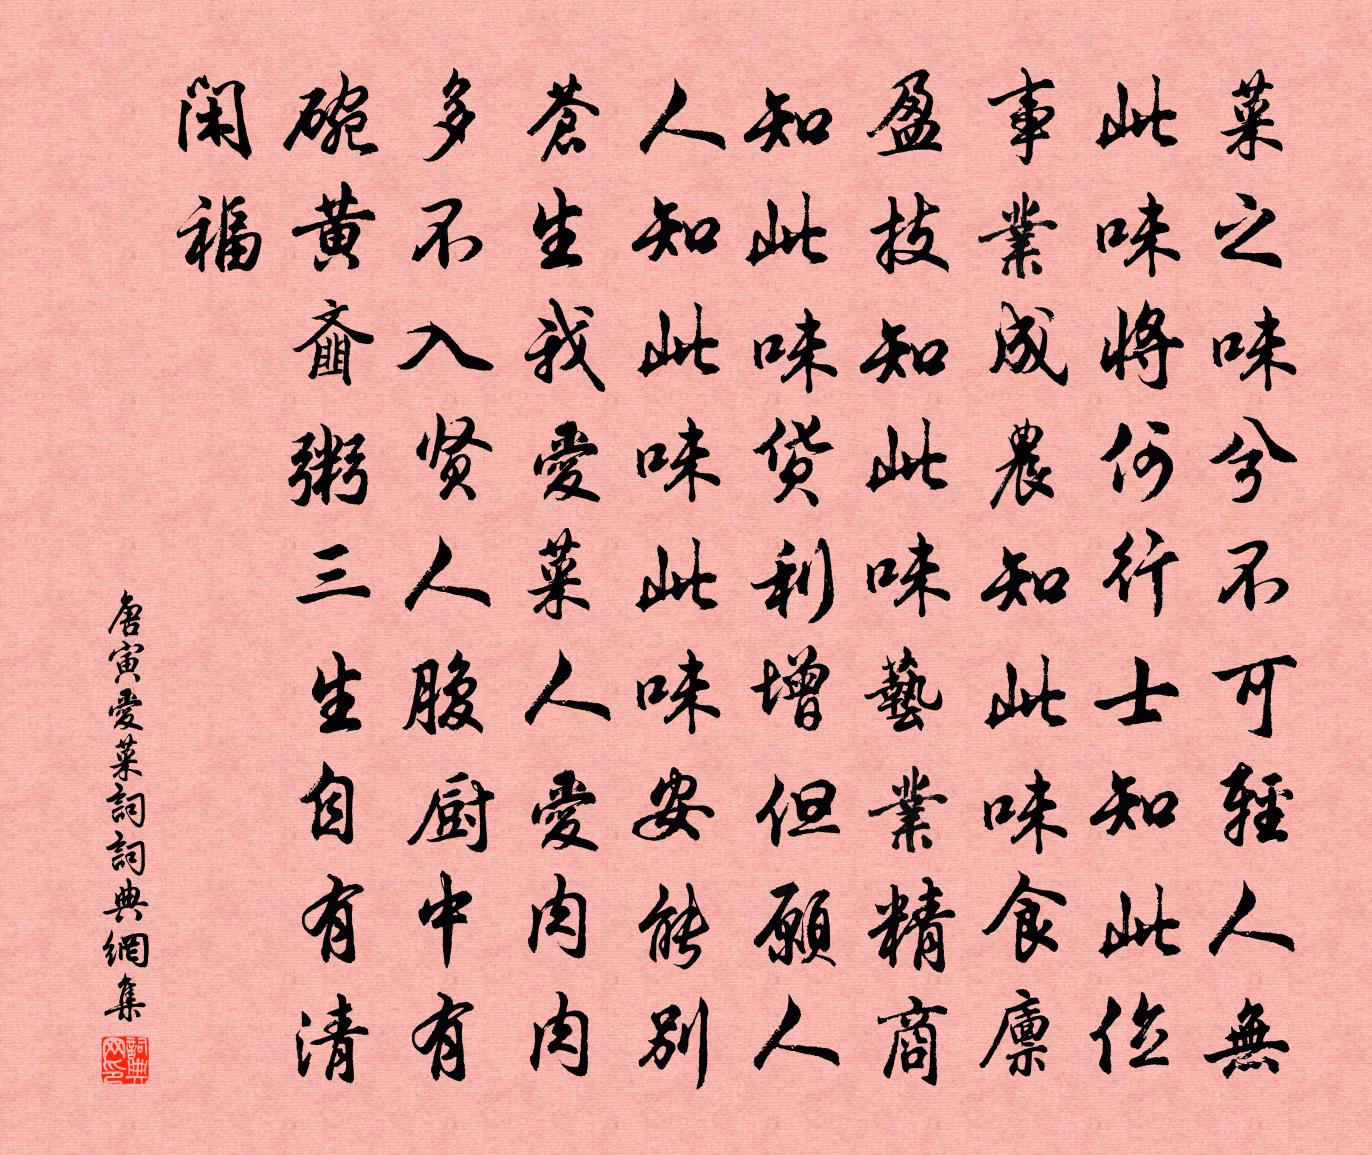 菜之味兮不可輕人無
此味將何行士知此位
事業成農知此味食廩
盈技知此味藝業精商
知此味货利增但願人
人知此味此味安能别
蒼生我愛菜人愛肉肉
多不入贤人腹厨中有
碗黄齑粥三生自有清
闲福
唐寅愛菜詞詞典網集
詞典网印